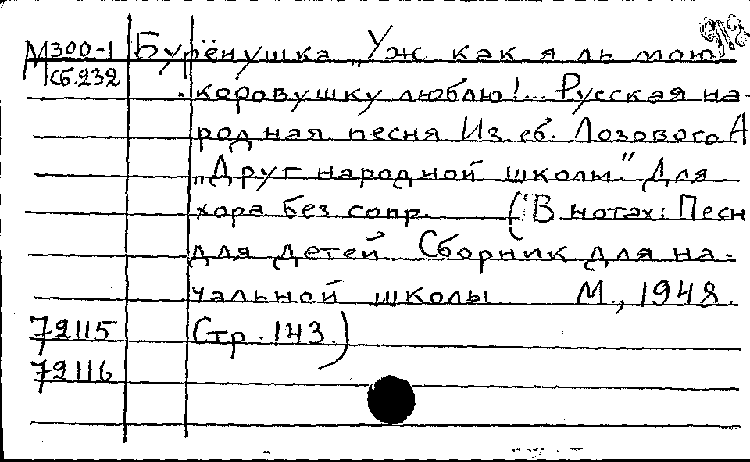 М300-1 Бурёнушка „Уж как я ль мою
сб.232 коровушку люблю!... Русская на-
родная песня Из сб. Лозового А
„Друг народной школы." Для
хора без сопр. (В нотах: Песн
для детей Сборник для на-
чальной школы М., 1948.
72115 Стр. 143.)
72116